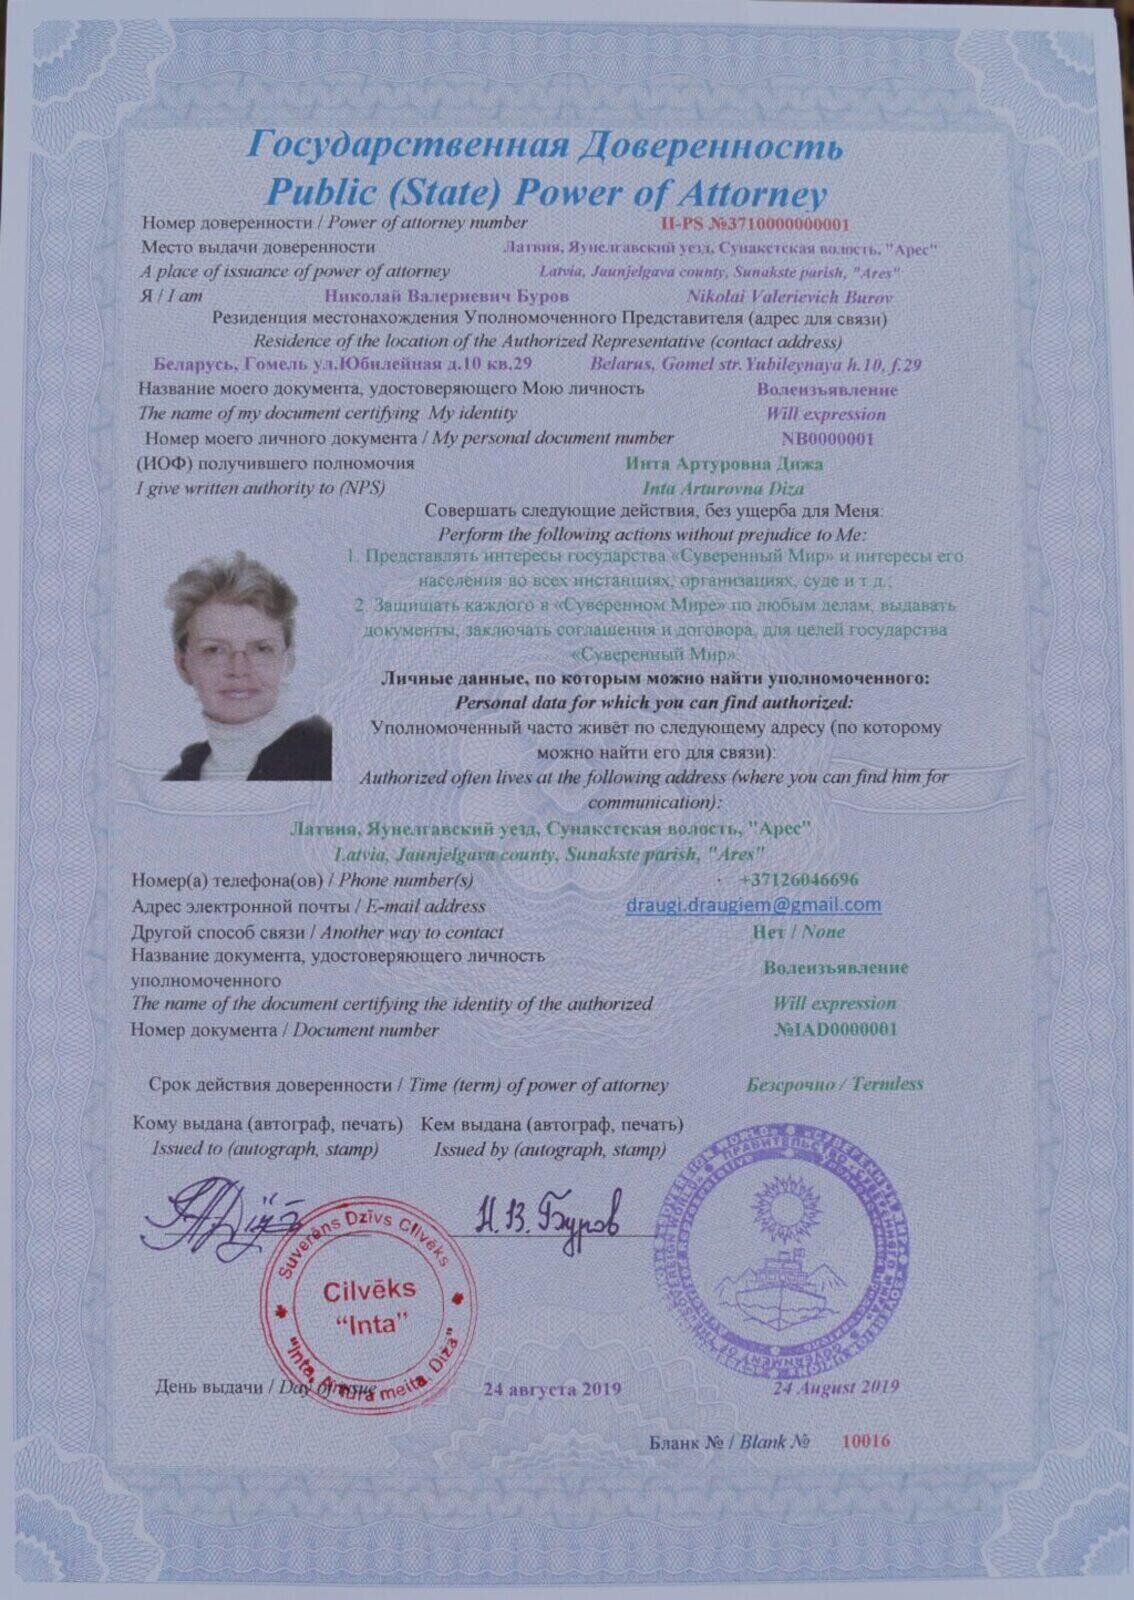 Государственная Доверенность
Public (State) Power of Attorney
Номер доверенности / Power of attorney number II-PS №3710000000001
Место выдачи доверенности Латвия, Яунелгавский уезд, Сунакстская волость, "Арес"
A place of issuance of power of attorney Latvia, Jaunjelgava county, Sunakste parish, "Ares"
Я / I am Николай Валериевич Буров Nikolai Valerievich Burov
Резиденция местонахождения Уполномоченного Представителя (адрес для связи)
Residence of the location of the Authorized Representative (contact address)
Беларусь, Гомель ул.Юбилейная д.10 кв.29 Belarus, Gomel str. Yubileynaya h.10, f.29
Название моего документа, удостоверяющего Мою личность Волеизъявление
The name of my document certifying My identity Will expression
Номер моего личного документа / My personal document number NB0000001
(ИОФ) получившего полномочия Инта Артуровна Дижа
I give written authority to (NPS) Inta Arturovna Diza
Совершать следующие действия, без ущерба для Меня:
Perform the following actions without prejudice to Me:
1. Представлять интересы государства «Суверенный Мир» и интересы его
населения во всех инстанциях, организациях, суде и т д.;
2. Защищать каждого в «Суверенном Мире» по любым делам, выдавать
документы, заключать соглашения и договора, для целей государства
«Суверенный Мир».
Личные данные, по которым можно найти уполномоченного:
Personal data for which you can find authorized:
Уполномоченный часто живёт по следующему адресу (по которому
можно найти его для связи):
Authorized often lives at the following address (where you can find him for
communication):
Латвия, Яунелгавский уезд, Сунакстская волость, "Арес"
Latvia, Jaunjelgava county, Sunakste parish, "Ares"
Номер(а) телефона(ов) / Phone number(s) +37126046696
Адрес электронной почты / E-mail address draugi.draugiem@gmail.com
Другой способ связи / Another way to contact Нет / None
Название документа, удостоверяющего личность
уполномоченного Волеизъявление
The name of the document certifying the identity of the authorized Will expression
Номер документа / Document number №IAD0000001
Срок действия доверенности / Time (term) of power of attorney Безсрочно / Termless
Кому выдана (автограф, печать) Кем выдана (автограф, печать)
Issued to (autograph, stamp) Issued by (autograph, stamp)
Н.В. Буров
Suverēns Dzīvs Cilvēks
Cilvēks
"Inta"
"Inta, Artūra meita, Diža"
День выдачи / Day of issue 24 августа 2019 24 August 2019
Бланк № / Blank № 10016